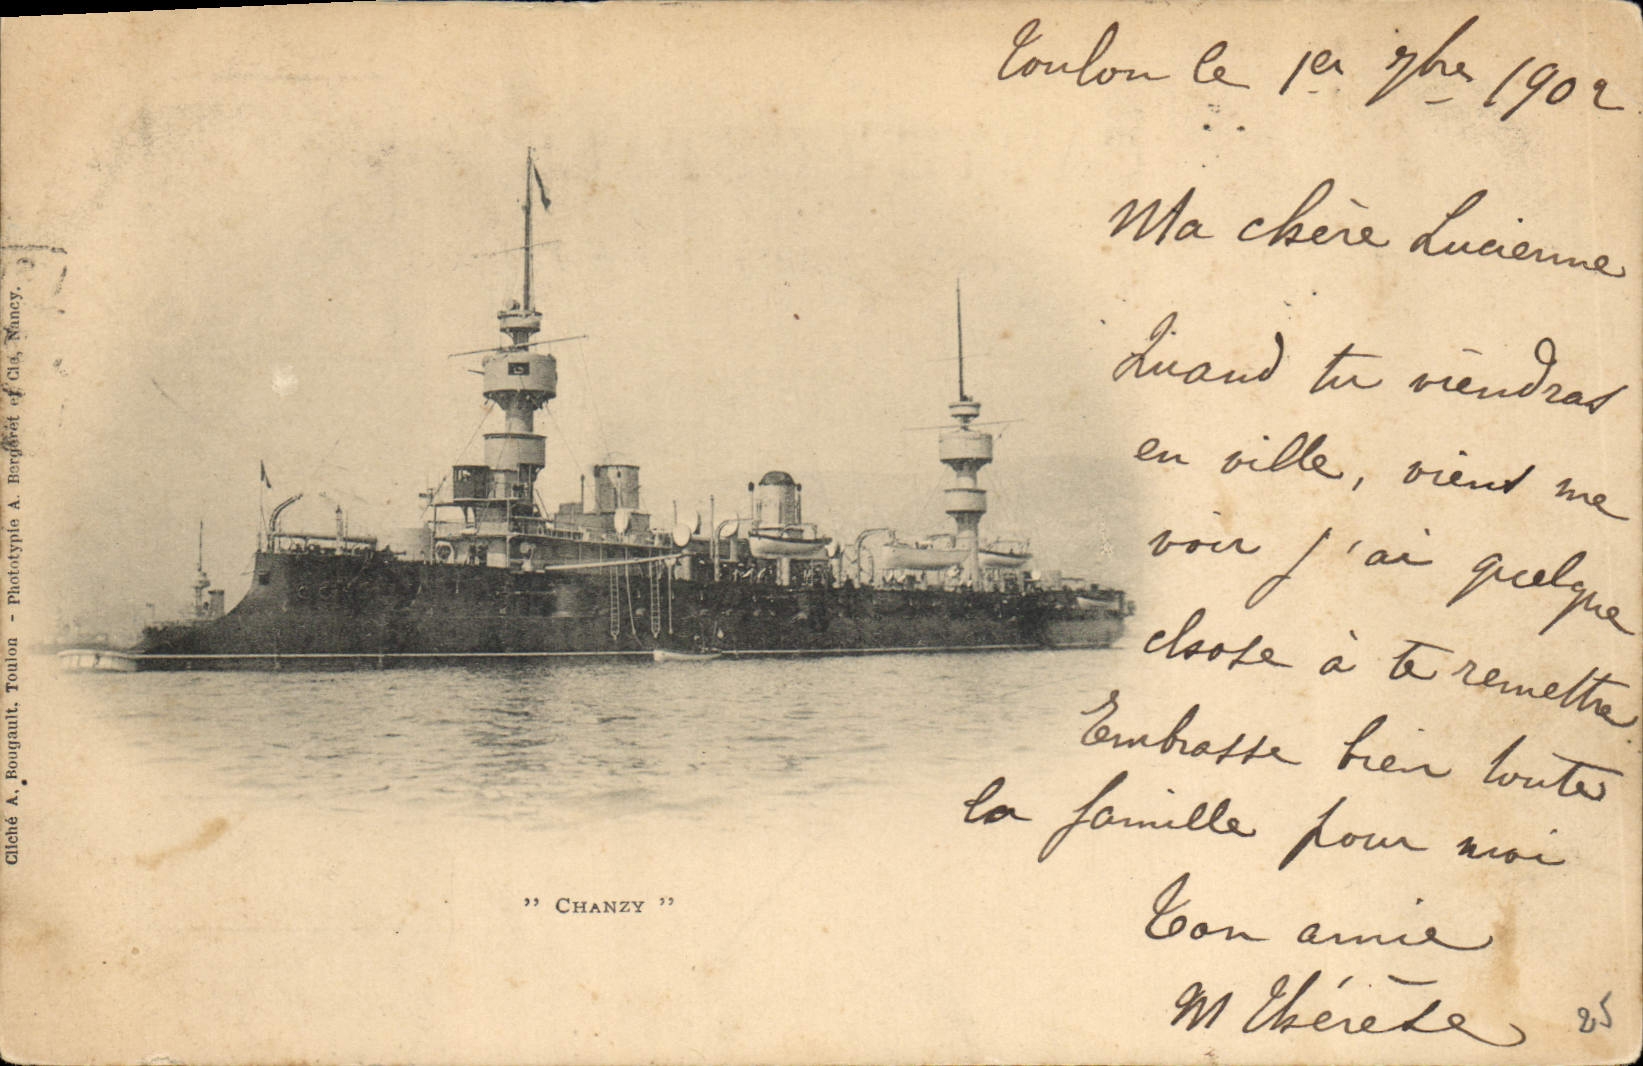 Toulon le 1er 7bre 1902
Ma chère Lucienne
Quand tu viendras
en ville, viens me
voir j'ai quelque
chose à te remettre
Embrasse bien toute
la famille pour moi
Ton amie
M Thérèse
25
" CHANZY "
Cliché A. Bougault. Toulon - Phototypie A. Bergeret et Cie, Nancy.